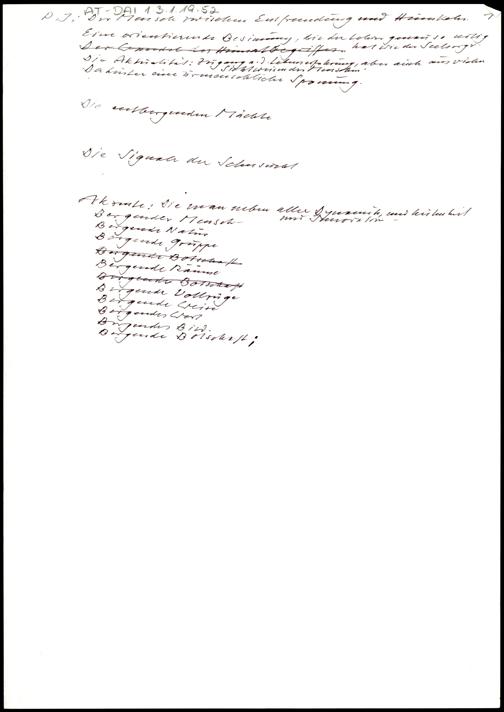 AT-DAI 1 3.1.19.52
D. I: Der Mensch zwischen Entfremdung und Heimkehr
Eine orientierende Besinnung, die der Lehrer genauso nötig
hat wie der Seelsorger
Die Aktualität: Zugang a. d. Lebenserfahrung, aber auch aus vielen
Dahinter eine urmenschliche Spannung.
Die entbergenden Mächte
Die Signale der Sehnsucht
Akzente: Die man neben aller Dynamik, und
und
Bergender Mensch
Bergende Natur
Bergende Gruppe
Bergende Botschaft
Bergende Räume
Bergende Botschaft
Bergende Vollzüge
Bergende Weise
Bergendes Wort
Bergendes Bild.
Bergende Botschaft;